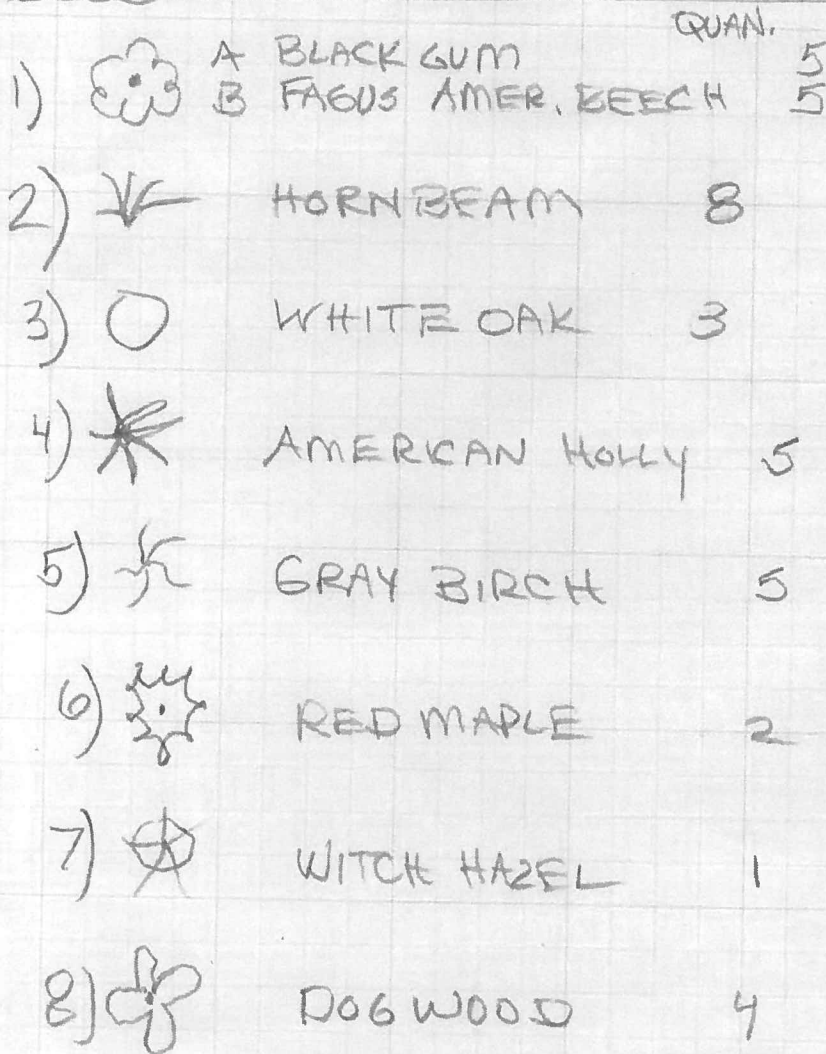 QUAN.
1) A BLACK GUM 5
B FAGUS AMER. BEECH 5
2) HORNBEAM 8
3) WHITE OAK 3
4) AMERICAN HOLLY 5
5) GRAY BIRCH 5
6) RED MAPLE 2
7) WITCH HAZEL 1
8) DOGWOOD 4